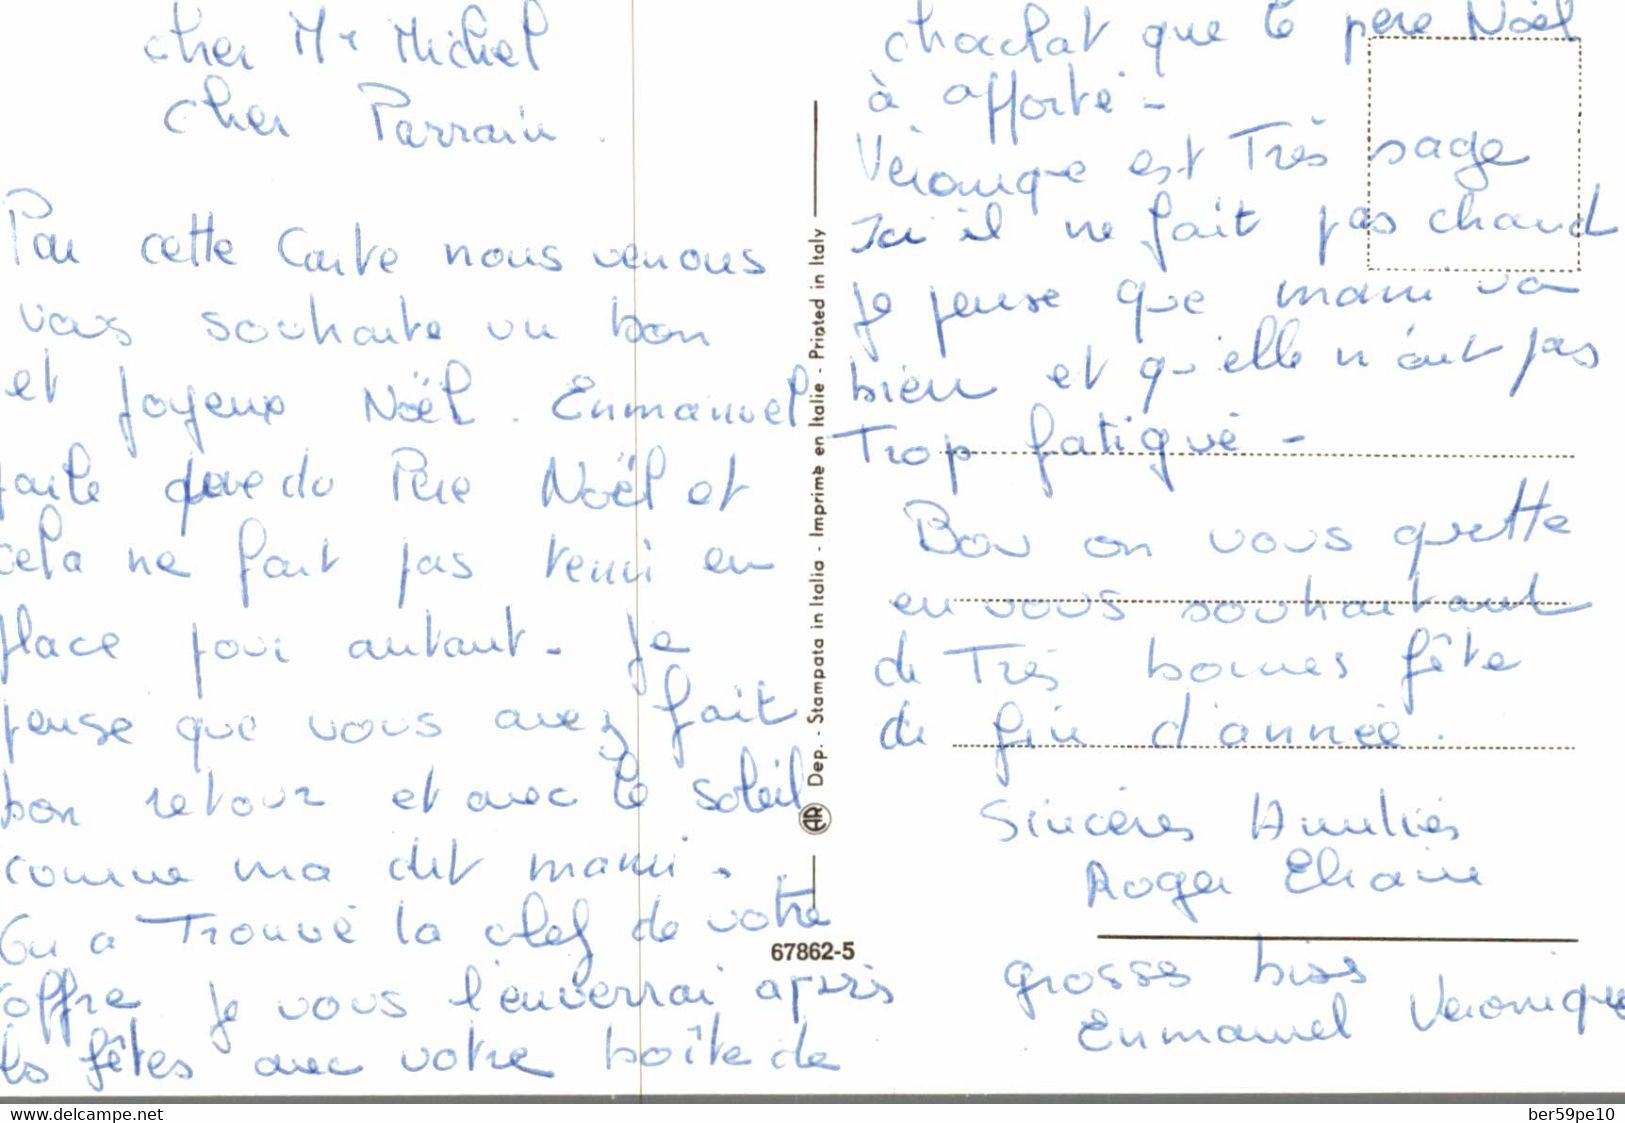 cher Mr Michel
cher Parrain.
Par cette Carte nous venons
vous souhaite un bon
et joyeux Noël. Emmanuel
parle que du Père Noël et
cela ne fait pas tenir en
place pour autant - Je
pense que vous avez fait
bon retour et avec le soleil
comme ma dit mami.
On a Trouvé la clef de votre
coffre je vous l'enverrai après
les fêtes avec votre boîte de
chocolat que le père Noël
à apporté -
Véronique est Très sage
Ici il ne fait pas chaud
je pense que mami va
bien et qu'elle n'aut pas
Trop fatigué -
Bon on vous quette
en vous souhaitant
de Très bonnes fête
de fin d'année.
Sincères Amitiés
Roger Eliane
grosses bises
Emmanuel Véronique
Dep. - Stampata in Italia - Imprimè en Italie - Printed in Italy
AR
67862-5
www.delcampe.net
ber59pe10